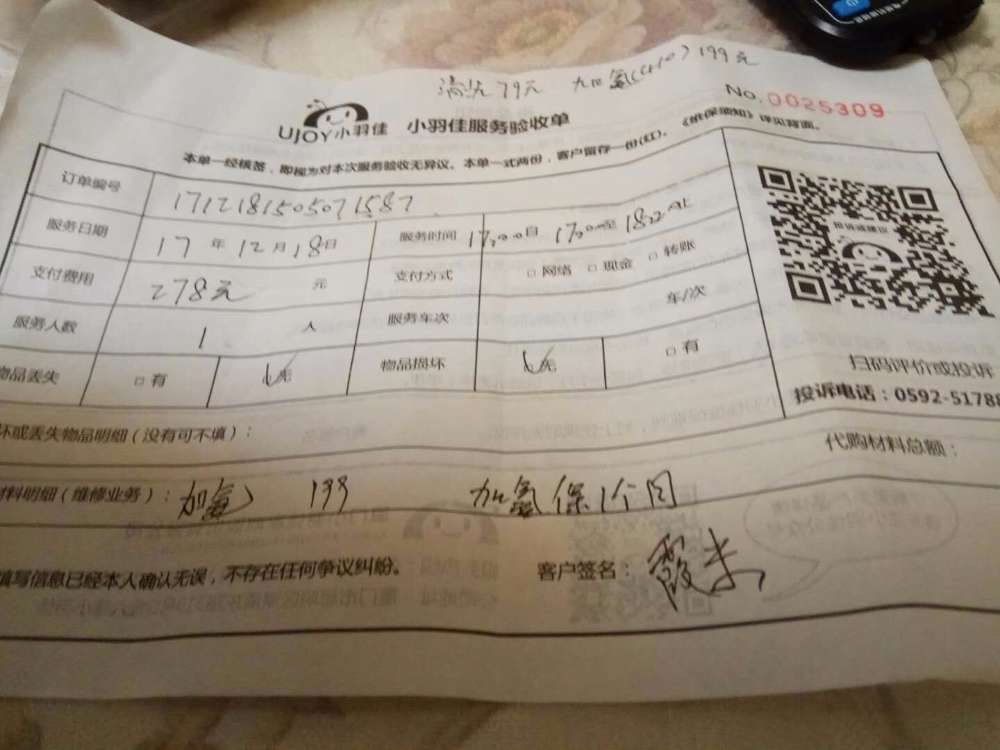 清洗79元 加氟(410)199元
No.0025309
UJOY小羽佳 小羽佳服务验收单
本单一经核签，即视为对本次服务验收无异议。本单一式两份，客户留存一份(红)。《维保须知》详见背面。
订单编号 1712181505071587
服务日期 17年12月18日 服务时间 17:00自 17:00至18:22止
支付费用 278元 元 支付方式 □网络 □现金 □转账
服务人数 1 人 服务车次 车/次
物品丢失 □有 无 物品损坏 无 □有
投诉或建议
扫码评价或投诉
投诉电话：0592-51788
坏或丢失物品明细（没有可不填）：
代购材料总额：
材料明细（维修业务）：加氟 199 加氟保1个月
填写信息已经本人确认无误，不存在任何争议纠纷。 客户签名：